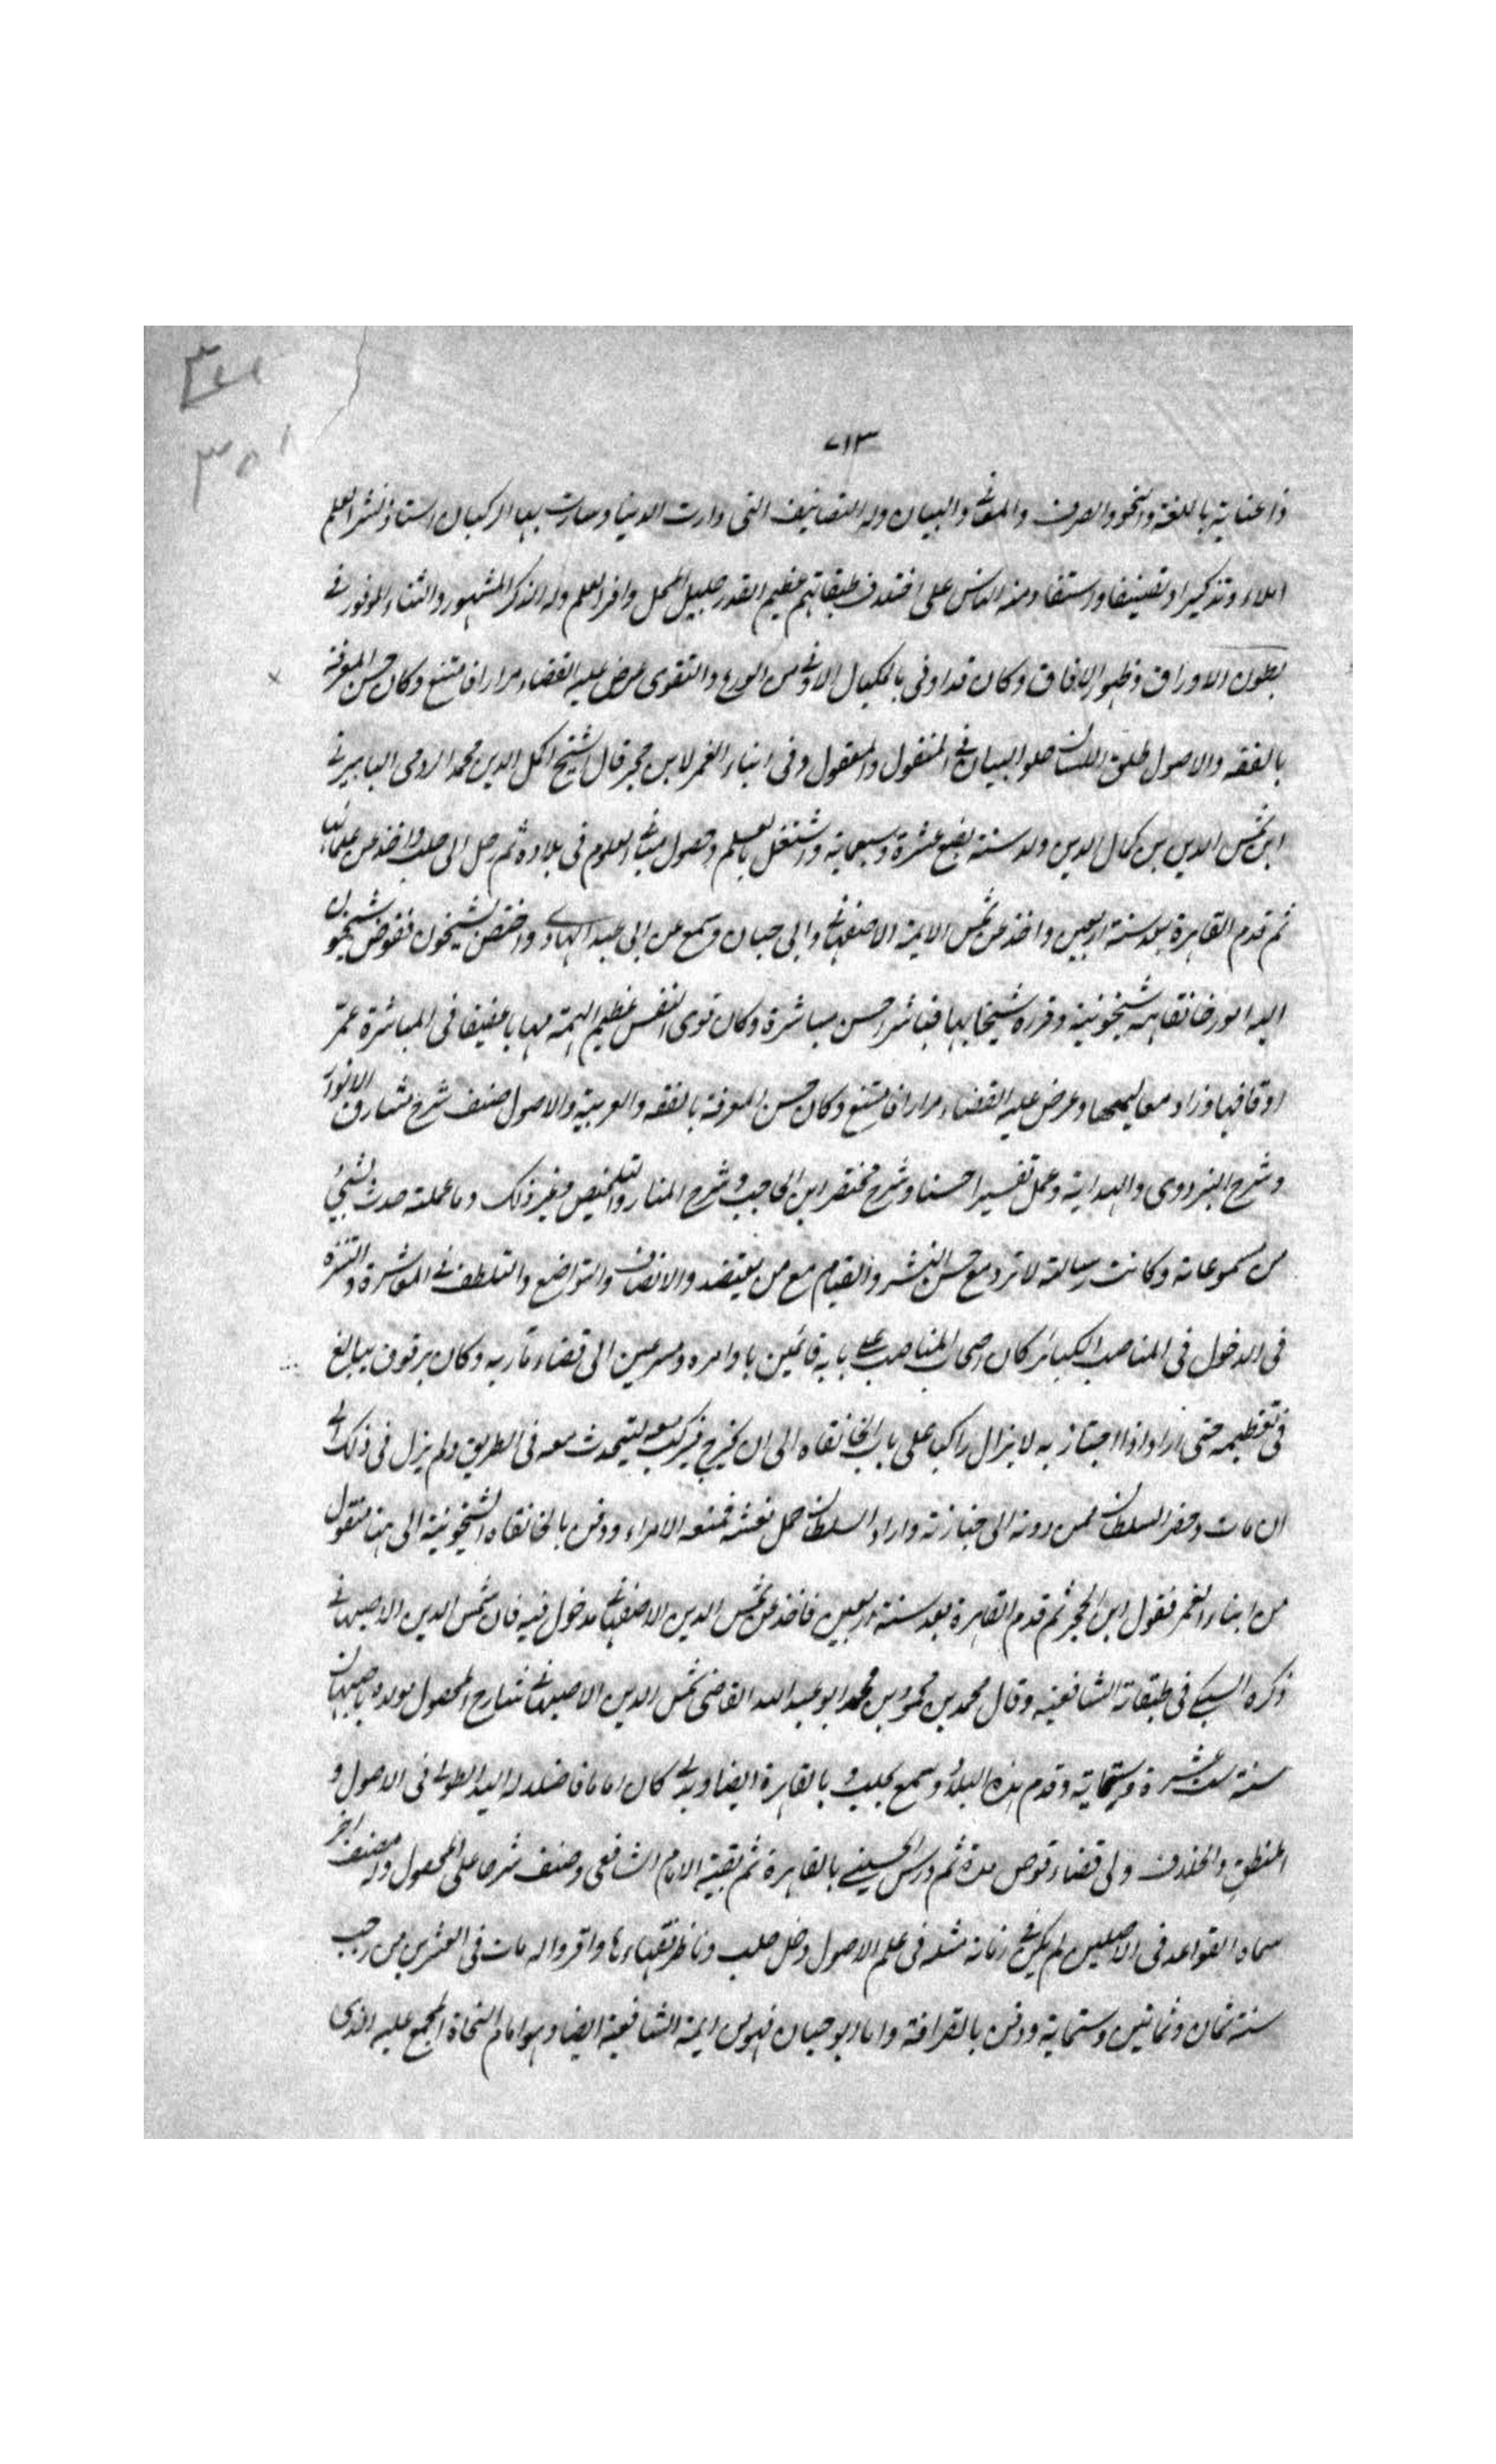 ٧١٣
ذا عناية باللغة والنحو والصرف والمعانى والبيان وله التصانيف التى دارت الدنيا وسارت بها الركبان استاذ نشر العلم
املاء وتذكيرا وتصنيفا واستفاد منه الناس على اختلاف طبقاتهم عظيم القدر جليل المحل وافر العلم وله الذكر المشهور والثناء الموفور فى
بطون الاوراق وظهور الافاق وكان قد اوفى بالمكيال الاوفى من الورع والتقوى عرض عليه القضاء مرارا فامتنع وكان حسن المعرفة
بالفقه والاصول طلق اللسان حلو البيان فى المنقول والمعقول وفى انباء الغمر لابن حجر قال الشيخ اكمل الدين محمد الرومى البابرتى
ابن شمس الدين بن كمال الدين ولد سنة بضع عشرة وسبعماية واشتغل بالعلم وحصول مبادى العلوم فى بلاده ثم رحل الى حلب واخذ عن علمائها
ثم قدم القاهرة بعد سنة اربعين واخذ عن شمس الايمة الاصفهانى وابى حيان وسمع عن ابى عبد الهادى واختص بشيخون ففوض شيخون
اليه امور خانقاهه شيخونية وقرره شيخا بها فباشر احسن مباشرة وكان قوى النفس عظيم الهمة مهابا عفيفا فى المباشرة عمر
اوقافها وزاد معاليمها وعرض عليه القضاء مرارا فامتنع وكان حسن المعرفة بالفقه والعربية والاصول صنف شرح مشارق الانوار
وشرح البزدوى والهداية وعمل تفسيرا حسنا وشرح مختصر ابن الحاجب وشرح المنار والتلخيص وغير ذلك وما عملته حدث بشئ
من مسموعاته وكانت رسالته لا ترد مع حسن البشر والقيام مع من يقصد والانصاف والتواضع والتلطف فى المعاشرة والتنزه
فى الدخول فى المناصب الكبائر كان اصحاب المناصب على بابه قائمين باوامره ومسرعين الى قضاء مآربه وكان برقوق يبالغ
فى تعظيمه حتى اراد اذا اجتاز به لا يزال راكبا على باب الخانقاه الى ان يخرج فيركب معه ليتحدث معه فى الطريق ولم يزل فى ذلك الى
ان مات وحضر السلطان فمن دونه الى جنازته واراد السلطان حمل نعشه فمنعه الامراء ودفن بالخانقاه الشيخونية الى هنا منقول
من انباء الغمر فقول ابن الحجر ثم قدم القاهرة بعد سنة اربعين فاخذ عن شمس الدين الاصفهانى مدخول فيه فان شمس الدين الاصبهانى
ذكره السبكى فى طبقات الشافعية وقال محمد بن محمود بن محمد ابو عبد الله القاضى شمس الدين الاصبهانى شارح المحصول مولده باصبهان
سنة ست عشرة وستماية وقدم هذه البلاد وسمع بحلب و بالقاهرة ايضا كان اماما فاضلا له اليد الطولى فى الاصول و
المنطق والخلاف ولى قضاء قوص مدة ثم درس بالقاهرة ثم بقبة الامام الشافعى وصنف شرحا على المحصول وله مصنف اخر
سماه القواعد فى الاصلين لم يكن فى زمانه مثله فى علم الاصول دخل حلب وناظر فقهاءها واقروا له مات فى العشرين من رجب
سنة ثمان وثمانين وستماية ودفن بالقرافة واما ابو حيان فهو من ايمة الشافعية ايضا وهو امام النحاة المجمع عليه الذى